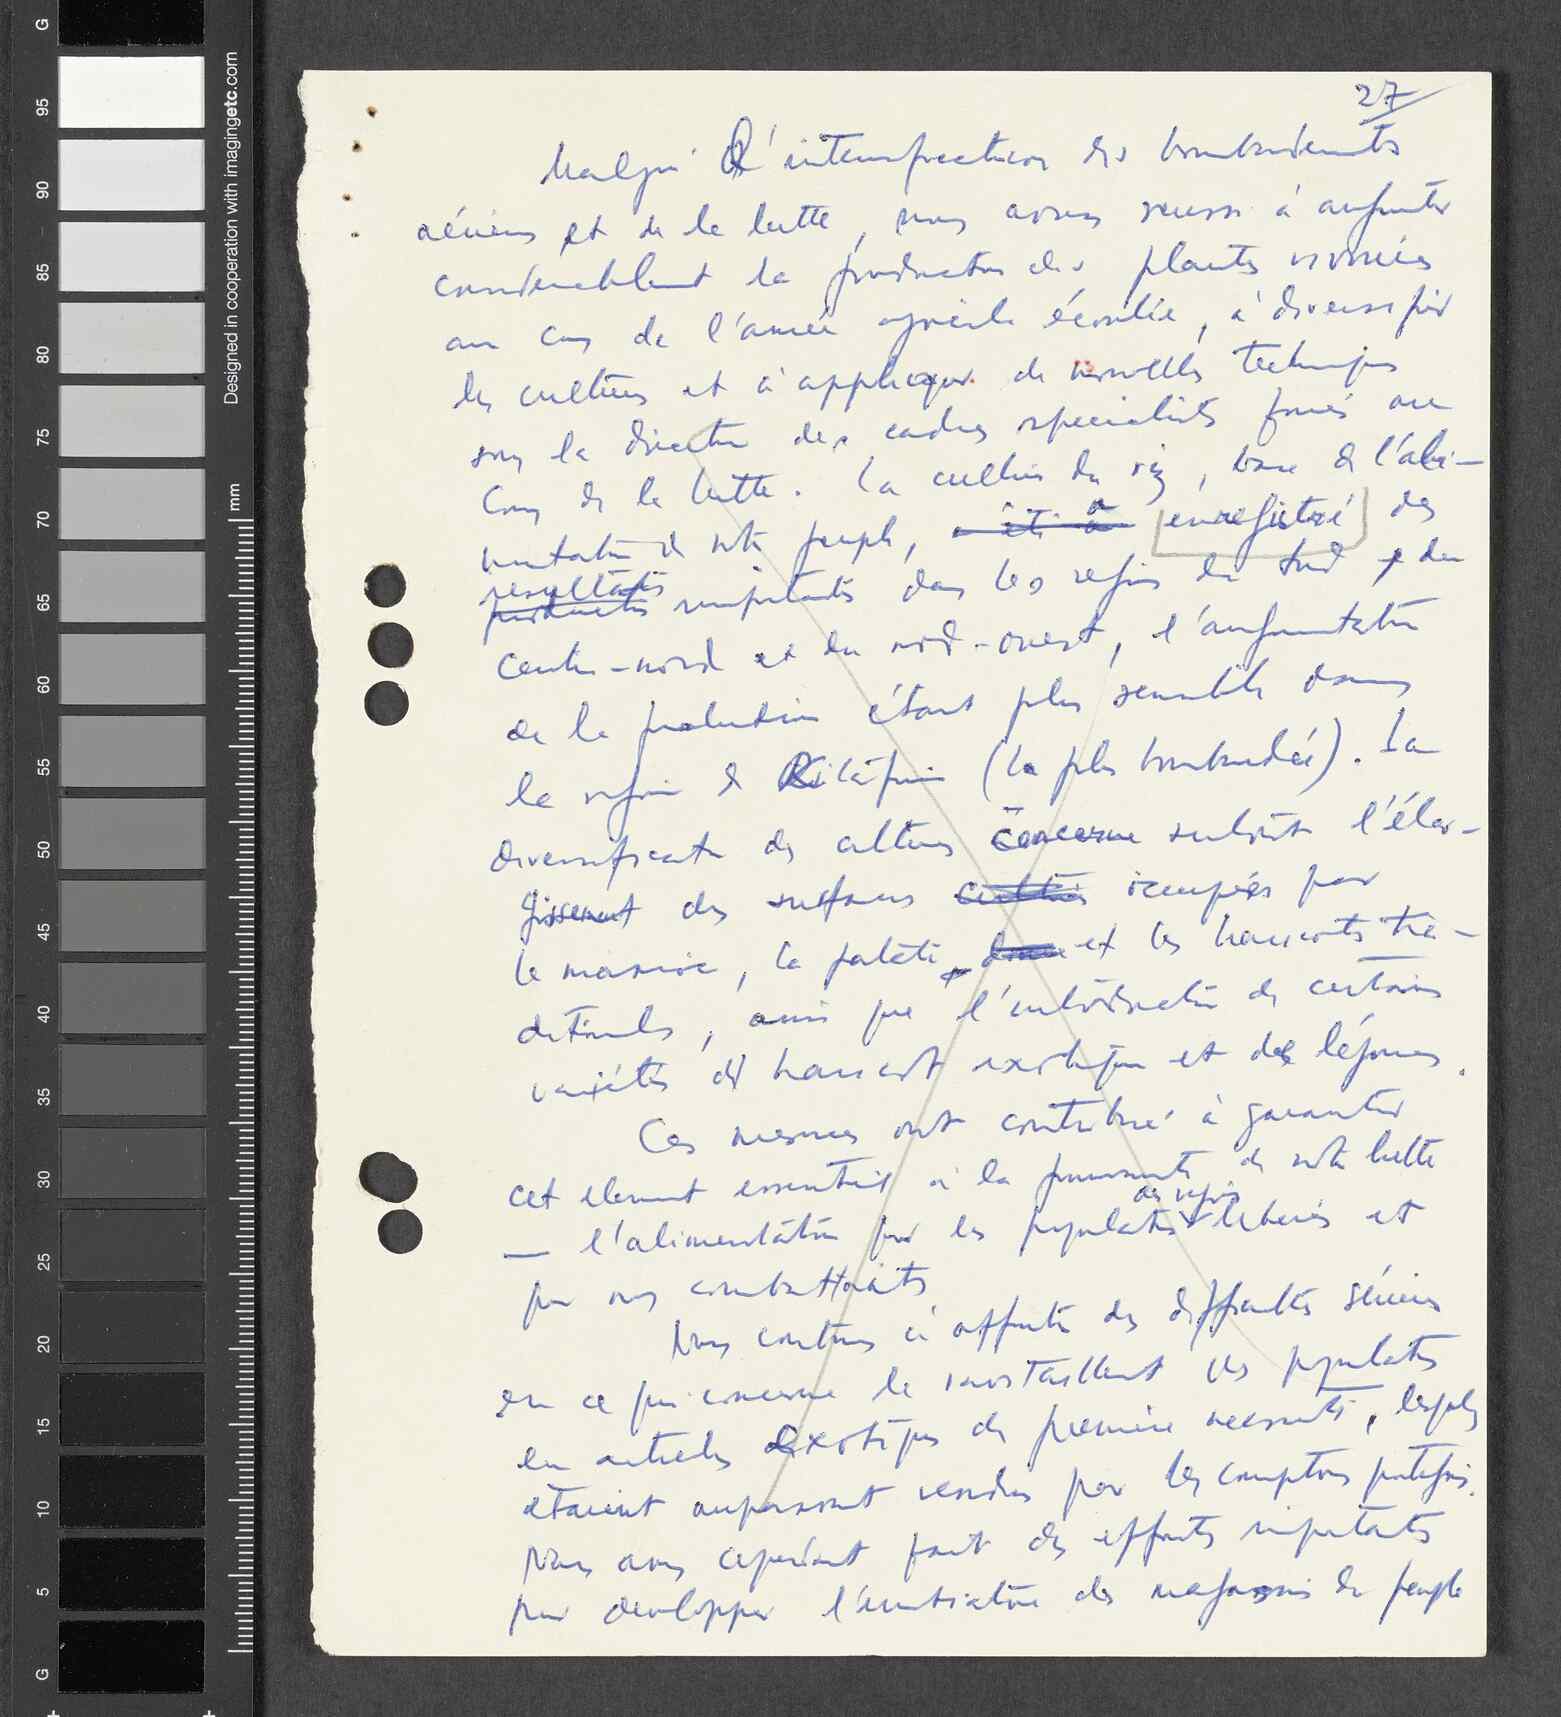 27
Malgré l'intensification des bombardements
aériens et de la lutte, nous avons reussi à augmenter
considérablement la production des plantes vivrières
au cours de l'année agricole écoulée, à diversifier
les cultures et à appliquer de nouvelles techniques
sous la direction des cadres specialisés formés au
cours de la lutte. La culture du riz, base de l'ali-
mentation de notre peuple, a enregistré des
resultats importants dans les regions du Sud, du
centre-nord et du nord-ouest, l'augmentation
de la production étant plus sensible dans
la region de Kitáfine (la plus bombardée). La
diversification des cultures concerne surtout l'élar-
gissement des surfaces occupées par
le manioc, la patate et les haricots tra-
ditionnels, ainsi que l'introduction de certaines
variétés de haricot exotique et des légumes.
Ces mesures ont contribué à garantir
cet element essentiel à la poursuite de notre lutte
— l'alimentation pour les populations des regions liberées et
pour nos combattants
Nous continuons à affronter des difficultés sérieuses
en ce qui concerne le ravitaillement des populations
en articles exotiques de première necessité, lesquels
étaient auparavant vendus par les comptoirs portugais.
Nous avons cependant fait des efforts importants
pour developper l'initiative des magasins du peuple